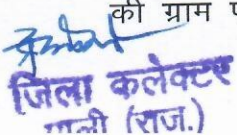 की ग्राम
जिला कलेक्टर
पाली (राज.)